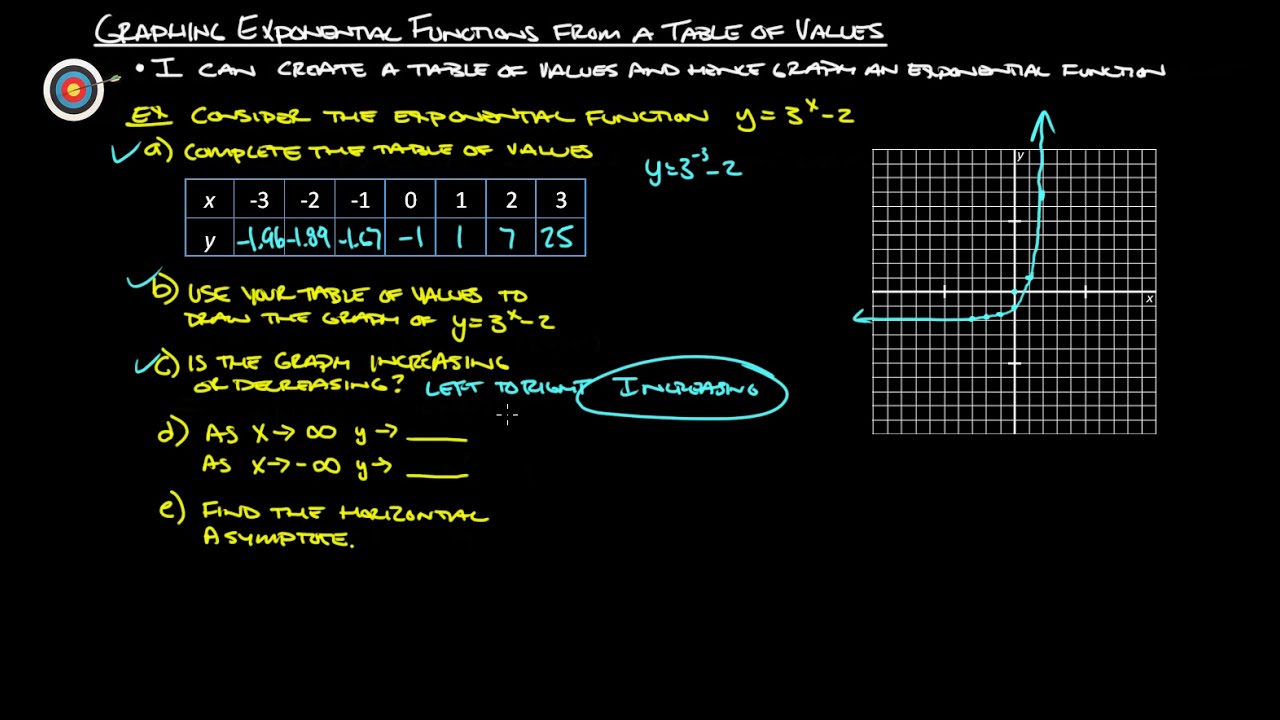 GRAPHING EXPONENTIAL FUNCTIONS FROM A TABLE OF VALUES
• I CAN CREATE A TABLE OF VALUES AND HENCE GRAPH AN EXPONENTIAL FUNCTION
EX CONSIDER THE EXPONENTIAL FUNCTION y = 3^x - 2
a) COMPLETE THE TABLE OF VALUES
y = 3^-3 - 2
x -3 -2 -1 0 1 2 3
y -1.96 -1.89 -1.67 -1 1 7 25
b) USE YOUR TABLE OF VALUES TO
DRAW THE GRAPH OF y = 3^x - 2
c) IS THE GRAPH INCREASING
OR DECREASING? LEFT TO RIGHT INCREASING
d) AS X → ∞ y → ____
AS X → -∞ y → ____
e) FIND THE HORIZONTAL
ASYMPTOTE.
y
x